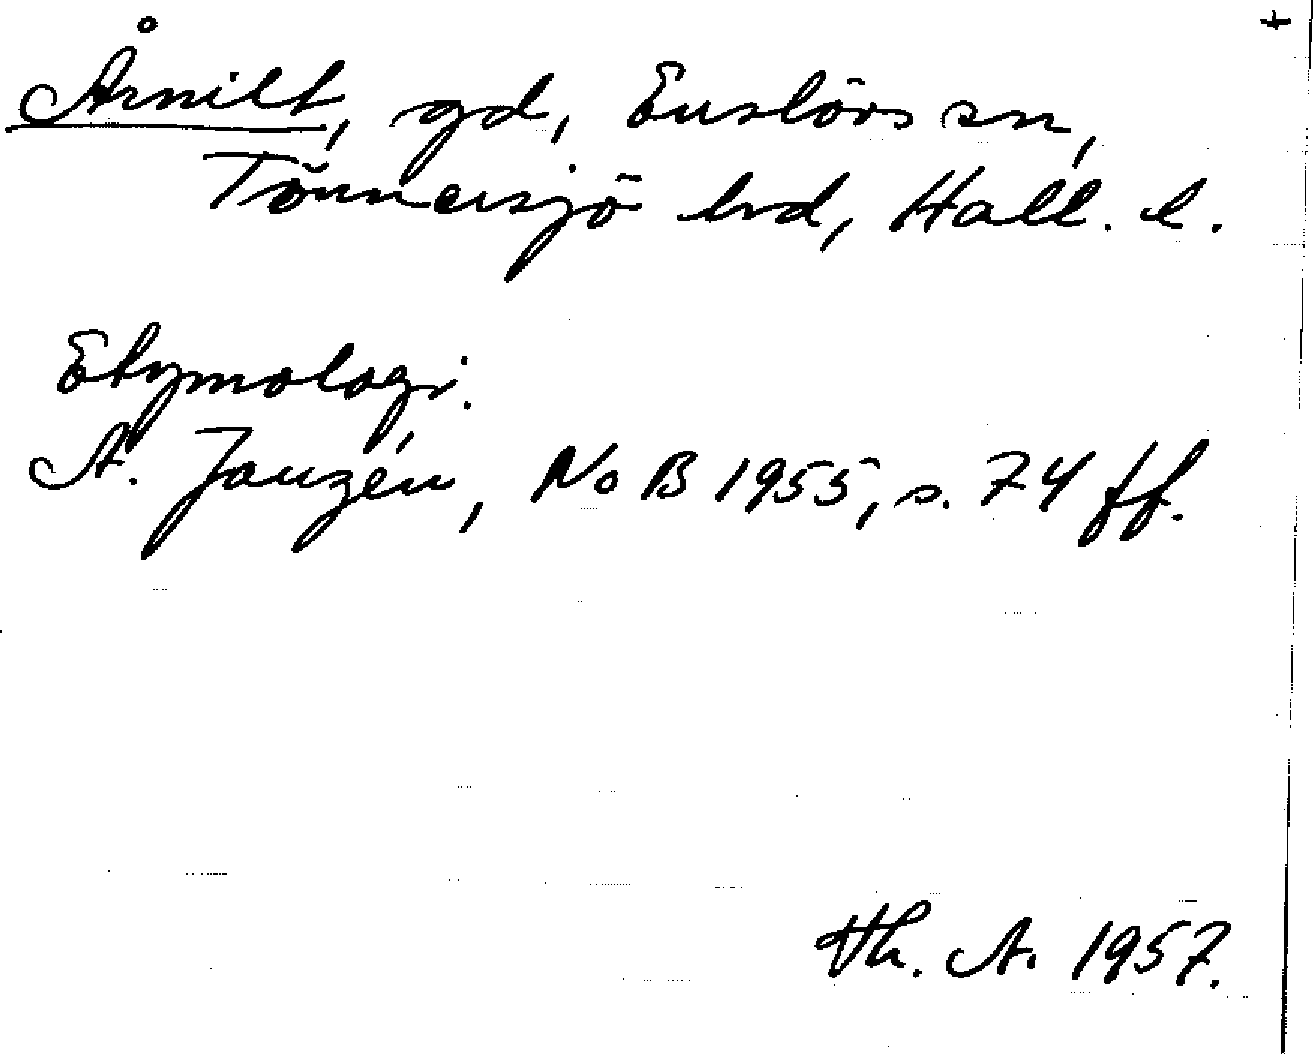 +
Årnilt, gd, Enslövs sn,
Tönnersjö hd, Hall. l.
Etymologi.
A. Janzén, NoB 1955, s. 74 ff.
Th. A. 1957.